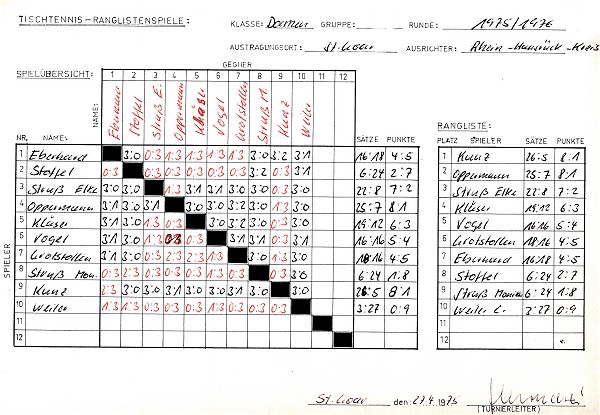 TISCHTENNIS-RANGLISTENSPIELE: KLASSE: Damen GRUPPE: RUNDE: 1975/1976
AUSTRAGUNGSORT: St. Goar AUSRICHTER: Rhein-Hunsrück-Kreis
GEGNER
SPIELÜBERSICHT: 1 2 3 4 5 6 7 8 9 10 11 12
NAME: Eberhand Stoffel Strauß E. Oppermann Kläser Vogel Großstollen Strauß M. Kunz Weiler
NR. NAME: SÄTZE PUNKTE
SPIELER
1 Eberhand 3:0 0:3 1:3 1:3 1:3 1:3 3:0 3:2 3:1 16:18 4:5
2 Stoffel 0:3 0:3 0:3 0:3 0:3 0:3 3:2 0:3 3:1 6:24 2:7
3 Strauß Elke 3:0 3:0 1:3 3:1 3:1 3:0 3:0 0:3 3:0 22:8 7:2
4 Oppermann 3:1 3:0 3:1 3:0 3:0 3:2 3:0 1:3 3:0 25:7 8:1
5 Kläser 3:1 3:0 1:3 0:3 3:0 3:2 3:0 0:3 3:0 19:12 6:3
6 Vogel 3:1 3:0 1:3 0:3 0:3 3:1 3:1 0:3 3:0 16:16 5:4
7 Großstollen 3:1 3:0 0:3 2:3 2:3 1:3 3:0 1:3 3:0 18:16 4:5
8 Strauß Mon. 0:3 2:3 0:3 0:3 0:3 1:3 0:3 0:3 3:0 6:24 1:8
9 Kunz 2:3 3:0 3:0 3:1 3:0 3:0 3:1 3:0 3:0 26:5 8:1
10 Weiler 1:3 1:3 0:3 0:3 0:3 0:3 0:3 0:3 0:3 3:27 0:9
11
12
RANGLISTE:
PLATZ SPIELER SÄTZE PUNKTE
1 Kunz 26:5 8:1
2 Oppermann 25:7 8:1
3 Strauß Elke 22:8 7:2
4 Kläser 19:12 6:3
5 Vogel 16:16 5:4
6 Großstollen 18:16 4:5
7 Eberhand 16:18 4:5
8 Stoffel 6:24 2:7
9 Strauß Monika 6:24 1:8
10 Weiler C. 3:27 0:9
11
12
St. Goar den: 27.4.1975
(TURNIERLEITER)